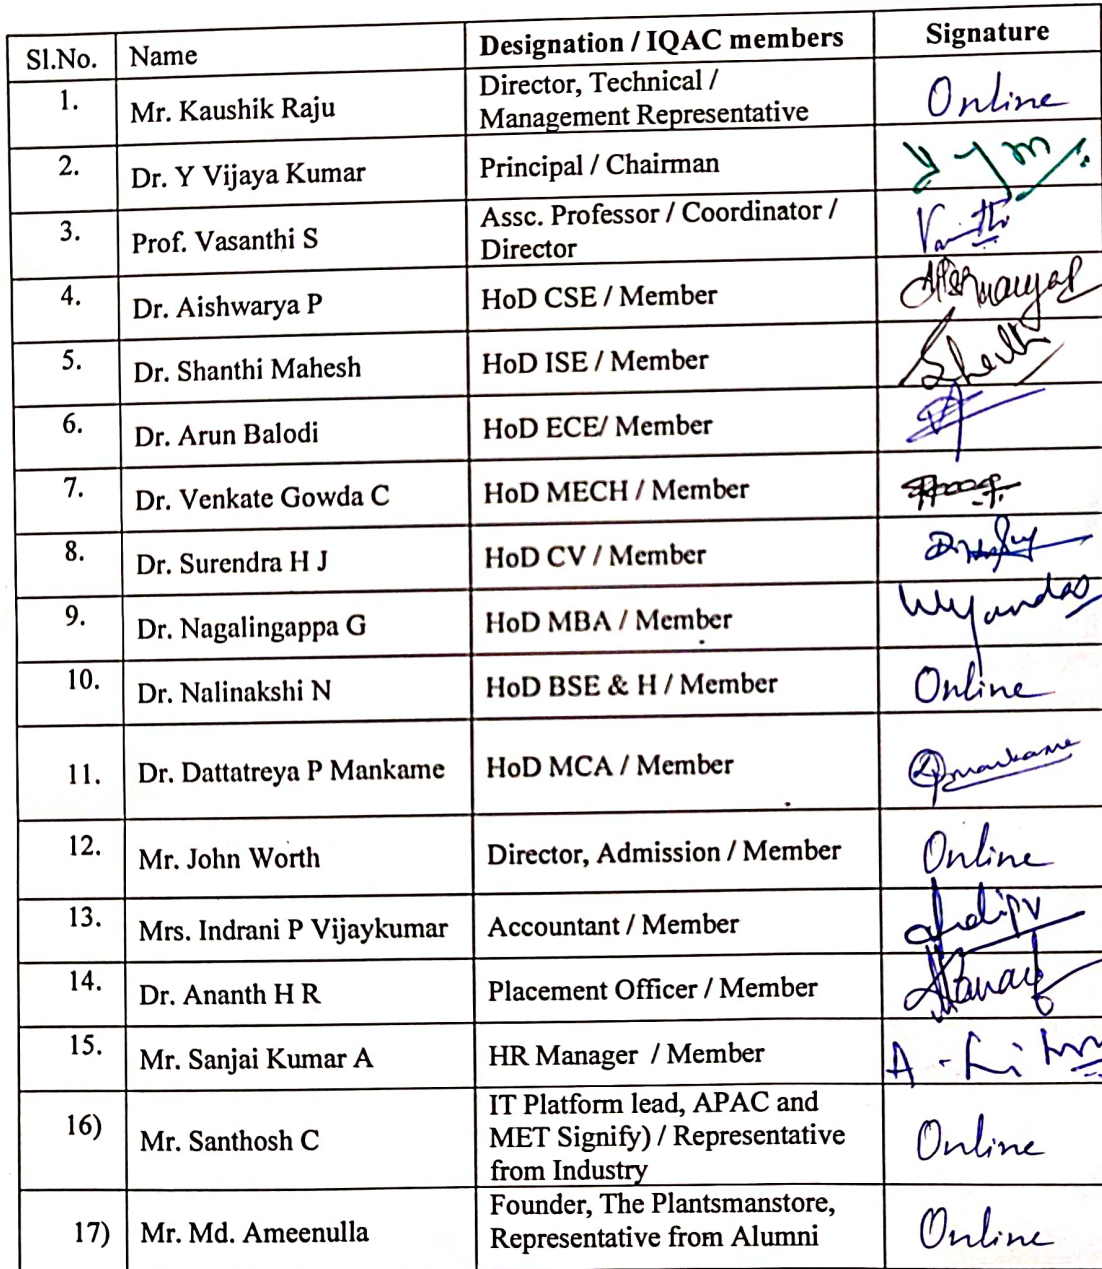 Sl.No. Name Designation / IQAC members Signature
1. Mr. Kaushik Raju Director, Technical /
Management Representative Online
2. Dr. Y Vijaya Kumar Principal / Chairman
3. Prof. Vasanthi S Assc. Professor / Coordinator /
Director
4. Dr. Aishwarya P HoD CSE / Member
5. Dr. Shanthi Mahesh HoD ISE / Member
6. Dr. Arun Balodi HoD ECE/ Member
7. Dr. Venkate Gowda C HoD MECH / Member
8. Dr. Surendra H J HoD CV / Member
9. Dr. Nagalingappa G HoD MBA / Member
10. Dr. Nalinakshi N HoD BSE & H / Member Online
11. Dr. Dattatreya P Mankame HoD MCA / Member
12. Mr. John Worth Director, Admission / Member Online
13. Mrs. Indrani P Vijaykumar Accountant / Member
14. Dr. Ananth H R Placement Officer / Member
15. Mr. Sanjai Kumar A HR Manager / Member
16) Mr. Santhosh C IT Platform lead, APAC and
MET Signify) / Representative
from Industry Online
17) Mr. Md. Ameenulla Founder, The Plantsmanstore,
Representative from Alumni Online